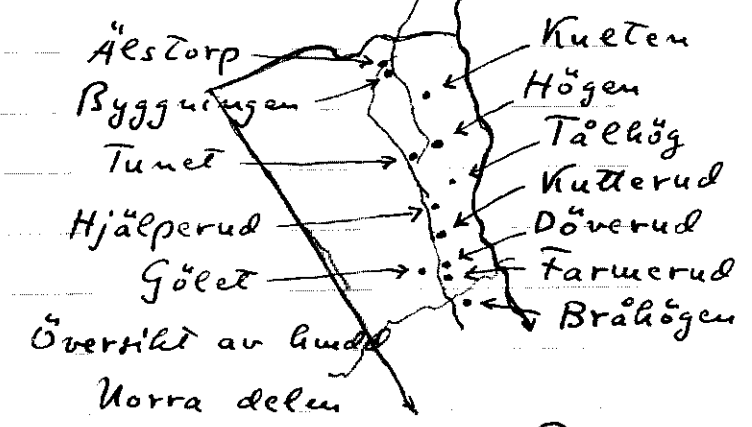 Älstorp
Byggningen
Tunet
Hjälperud
Gölet
Översikt av
Norra delen
Kulten
Högen
Tålhög
Kutterud
Döverud
Farmerud
Bråhögen